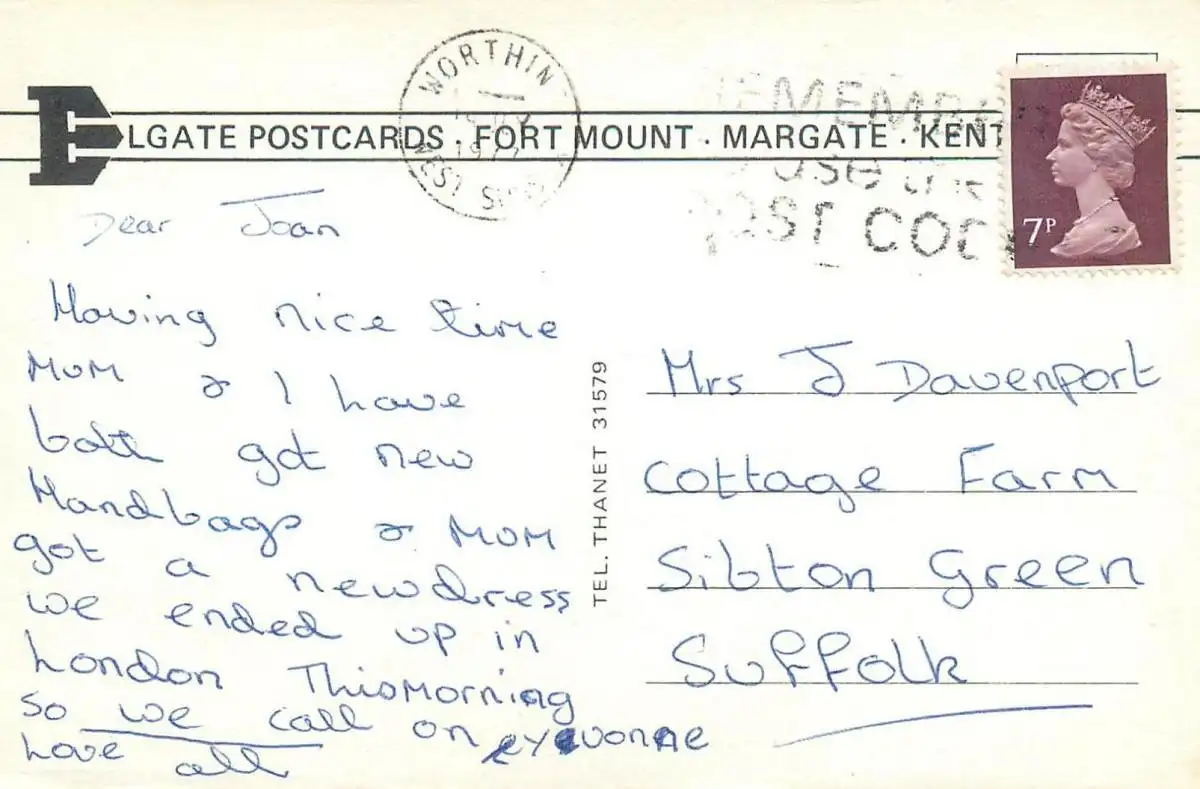 ELGATE POSTCARDS · FORT MOUNT · MARGATE · KENT
WORTHIN
WEST
USE
POST COD
7P
Dear Joan
Having nice time
MUM & I have
both got new
Handbags & MUM
got a new dress
we ended up in
London This morning
So we call on
Love all
TEL. THANET 31579
Mrs J Davenport
Cottage Farm
Sibton Green
Suffolk